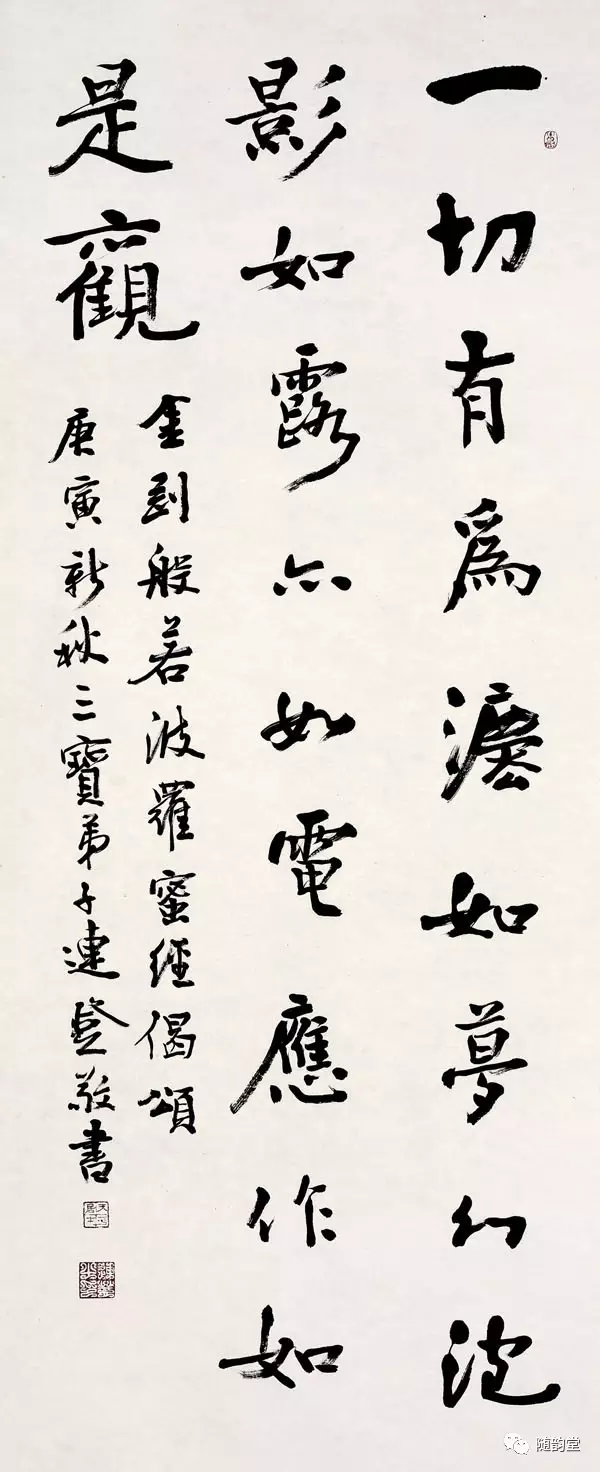 一切有爲灋如夢幻泡
影如露亦如電應作如
是觀
金剛般若波羅蜜經偈頌
庚寅新秋三寶弟子連登敬書
随韵堂